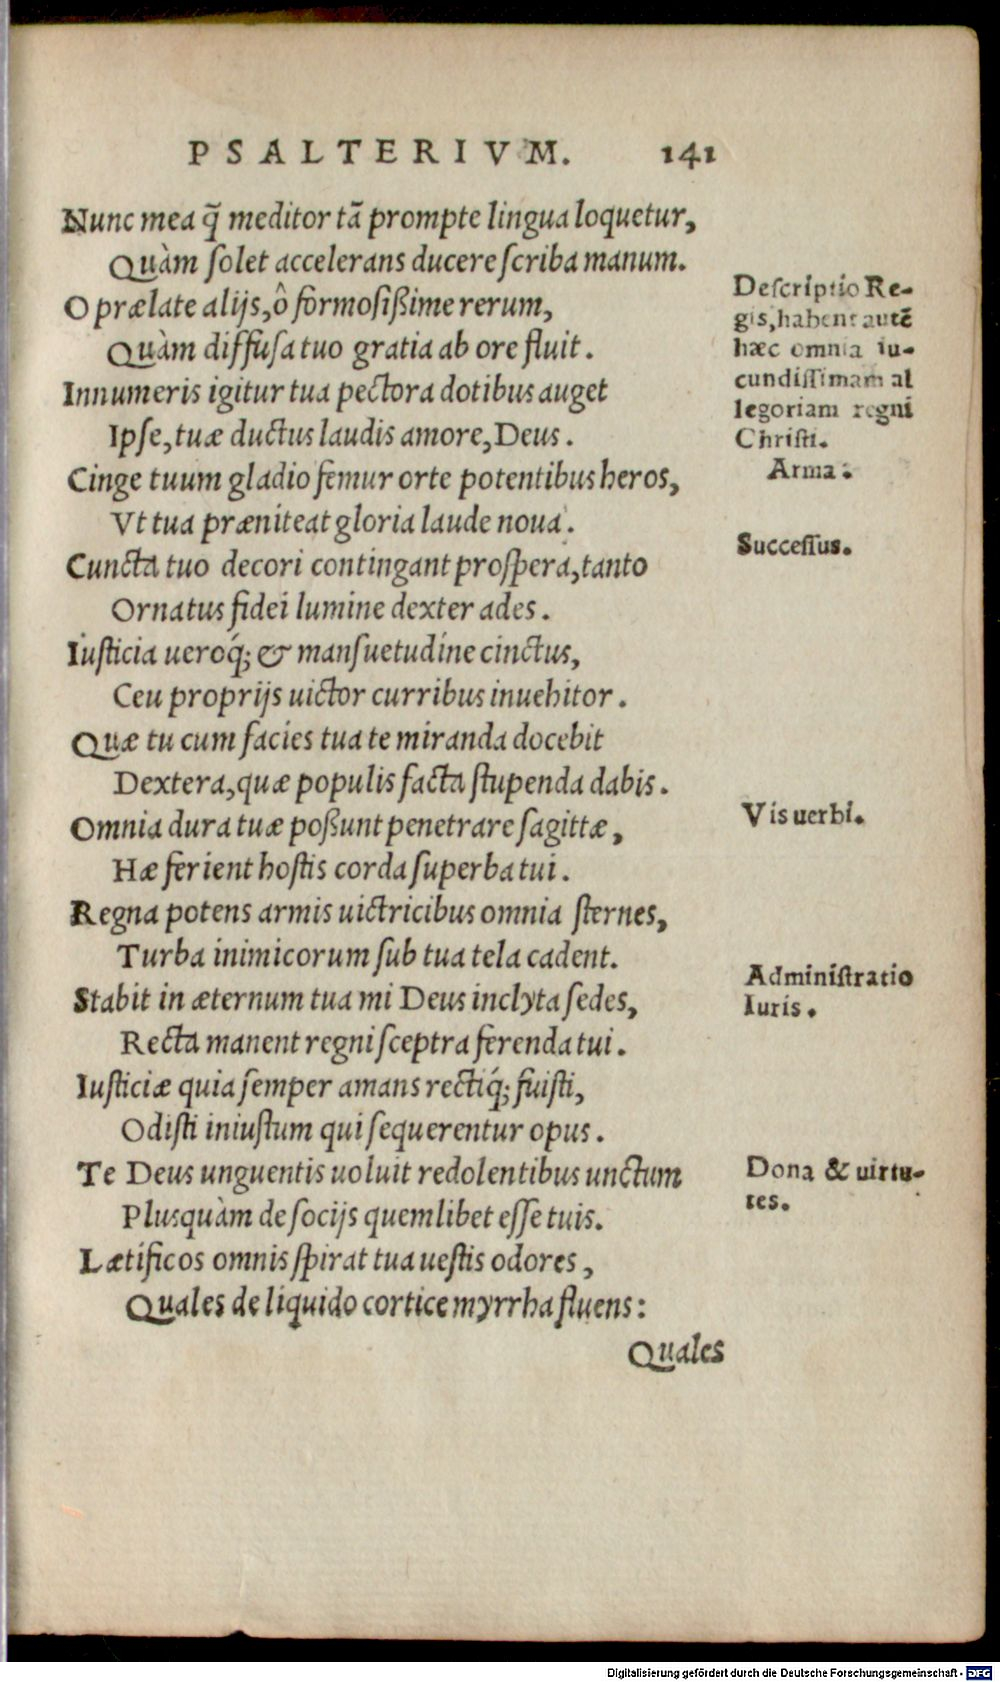 PSALTERIVM. 141
Nunc mea q̃ meditor tã prompte lingua loquetur,
Quàm ſolet accelerans ducere ſcriba manum.
O prælate alijs, ô formosißime rerum,
Quàm diffuſa tuo gratia ab ore fluit.
Innumeris igitur tua pectora dotibus auget
Ipſe, tuæ ductus laudis amore, Deus.
Cinge tuum gladio femur orte potentibus heros,
Vt tua præniteat gloria laude noua.
Cuncta tuo decori contingant proſpera, tanto
Ornatus fidei lumine dexter ades.
Iuſticia ueroq́; & manſuetudine cinctus,
Ceu proprijs uictor curribus inuehitor.
Quæ tu cum facies tua te miranda docebit
Dextera, quæ populis facta ſtupenda dabis.
Omnia dura tuæ poßunt penetrare ſagittæ,
Hæ ferient hoſtis corda ſuperba tui.
Regna potens armis uictricibus omnia ſternes,
Turba inimicorum ſub tua tela cadent.
Stabit in æternum tua mi Deus inclyta ſedes,
Recta manent regni ſceptra ferenda tui.
Iuſticiæ quia ſemper amans rectiq́; fuiſti,
Odiſti iniuſtum qui ſequerentur opus.
Te Deus unguentis uoluit redolentibus unctum
Plusquàm de ſocijs quemlibet eſſe tuis.
Lætificos omnis ſpirat tua ueſtis odores,
Quales de liquido cortice myrrha fluens:
Quales
Deſcriptio Re-
gis, habent autẽ
hæc omnia iu-
cundiſſimam al
legoriam regni
Chriſti.
Arma.
Succeſſus.
Vis uerbi.
Adminiſtratio
Iuris.
Dona & uirtu-
tes.
Digitalisierung gefördert durch die Deutsche Forschungsgemeinschaft - DFG